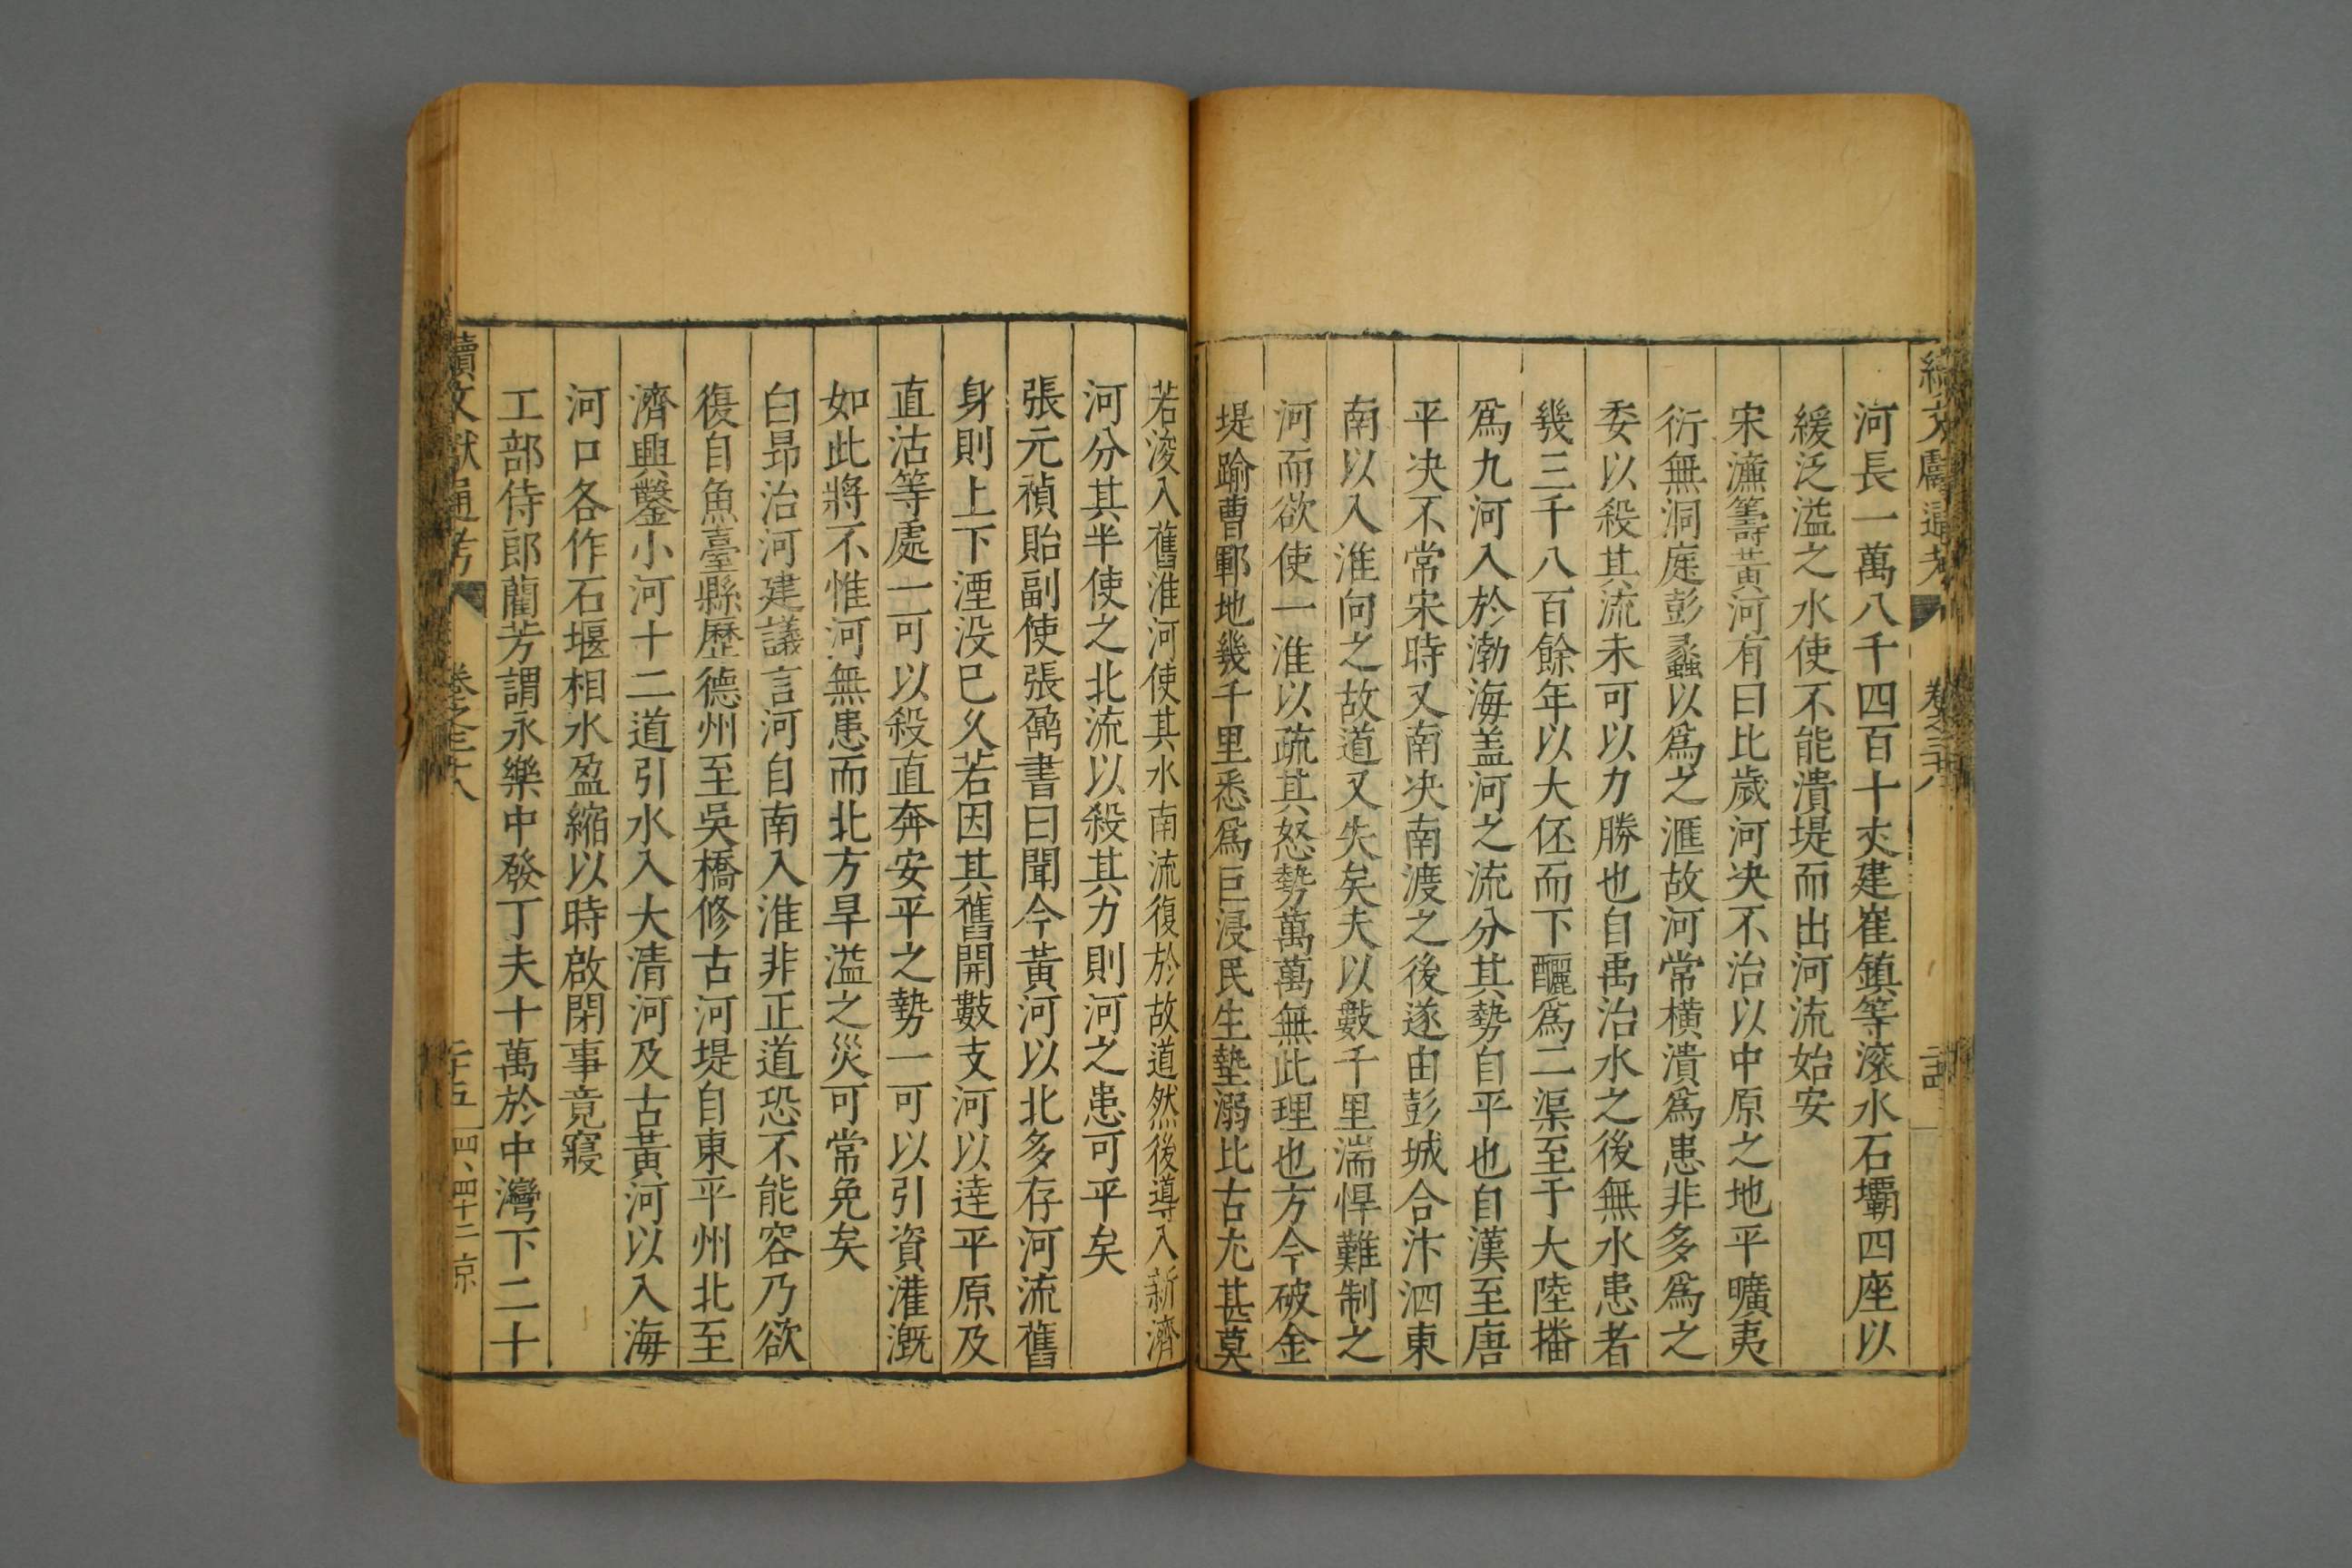 續文獻通考
河長一萬八千四百十丈建崔鎮等滾水石壩四座以
緩泛溢之水使不能潰堤而出河流始安
宋濂籌黃河有曰比歲河决不治以中原之地平曠夷
衍無洞庭彭蠡以爲之滙故河常横潰爲患非多爲之
委以殺其流未可以力勝也自禹治水之後無水患者
幾三千八百餘年以大伾而下釃爲二渠至于大陸播
爲九河入於渤海盖河之流分其勢自平也自漢至唐
平决不常宋時又南决南渡之後遂由彭城合汴泗東
南以入淮向之故道又失矣夫以數千里湍悍難制之
河而欲使一淮以疏其怒勢萬萬無此理也方今破金
堤踰曹鄆地幾千里悉爲巨浸民生墊溺比古尤甚莫
若浚入舊淮河使其水南流復於故道然後導入新濟
河分其半使之北流以殺其力則河之患可平矣
張元禎貽副使張鼐書曰聞今黃河以北多存河流舊
身則上下湮没已久若因其舊開數支河以達平原及
直沽等處一可以殺直奔安平之勢一可以引資灌溉
如此將不惟河無患而北方旱溢之災可常免矣
白昂治河建議言河自南入淮非正道恐不能容乃欲
復自魚臺縣歷德州至吳橋修古河堤自東平州北至
濟興鑿小河十二道引水入大清河及古黃河以入海
河口各作石堰相水盈縮以時啟閉事竟寢
工部侍郎藺芳謂永樂中發丁夫十萬於中灣下二十
續文獻通考